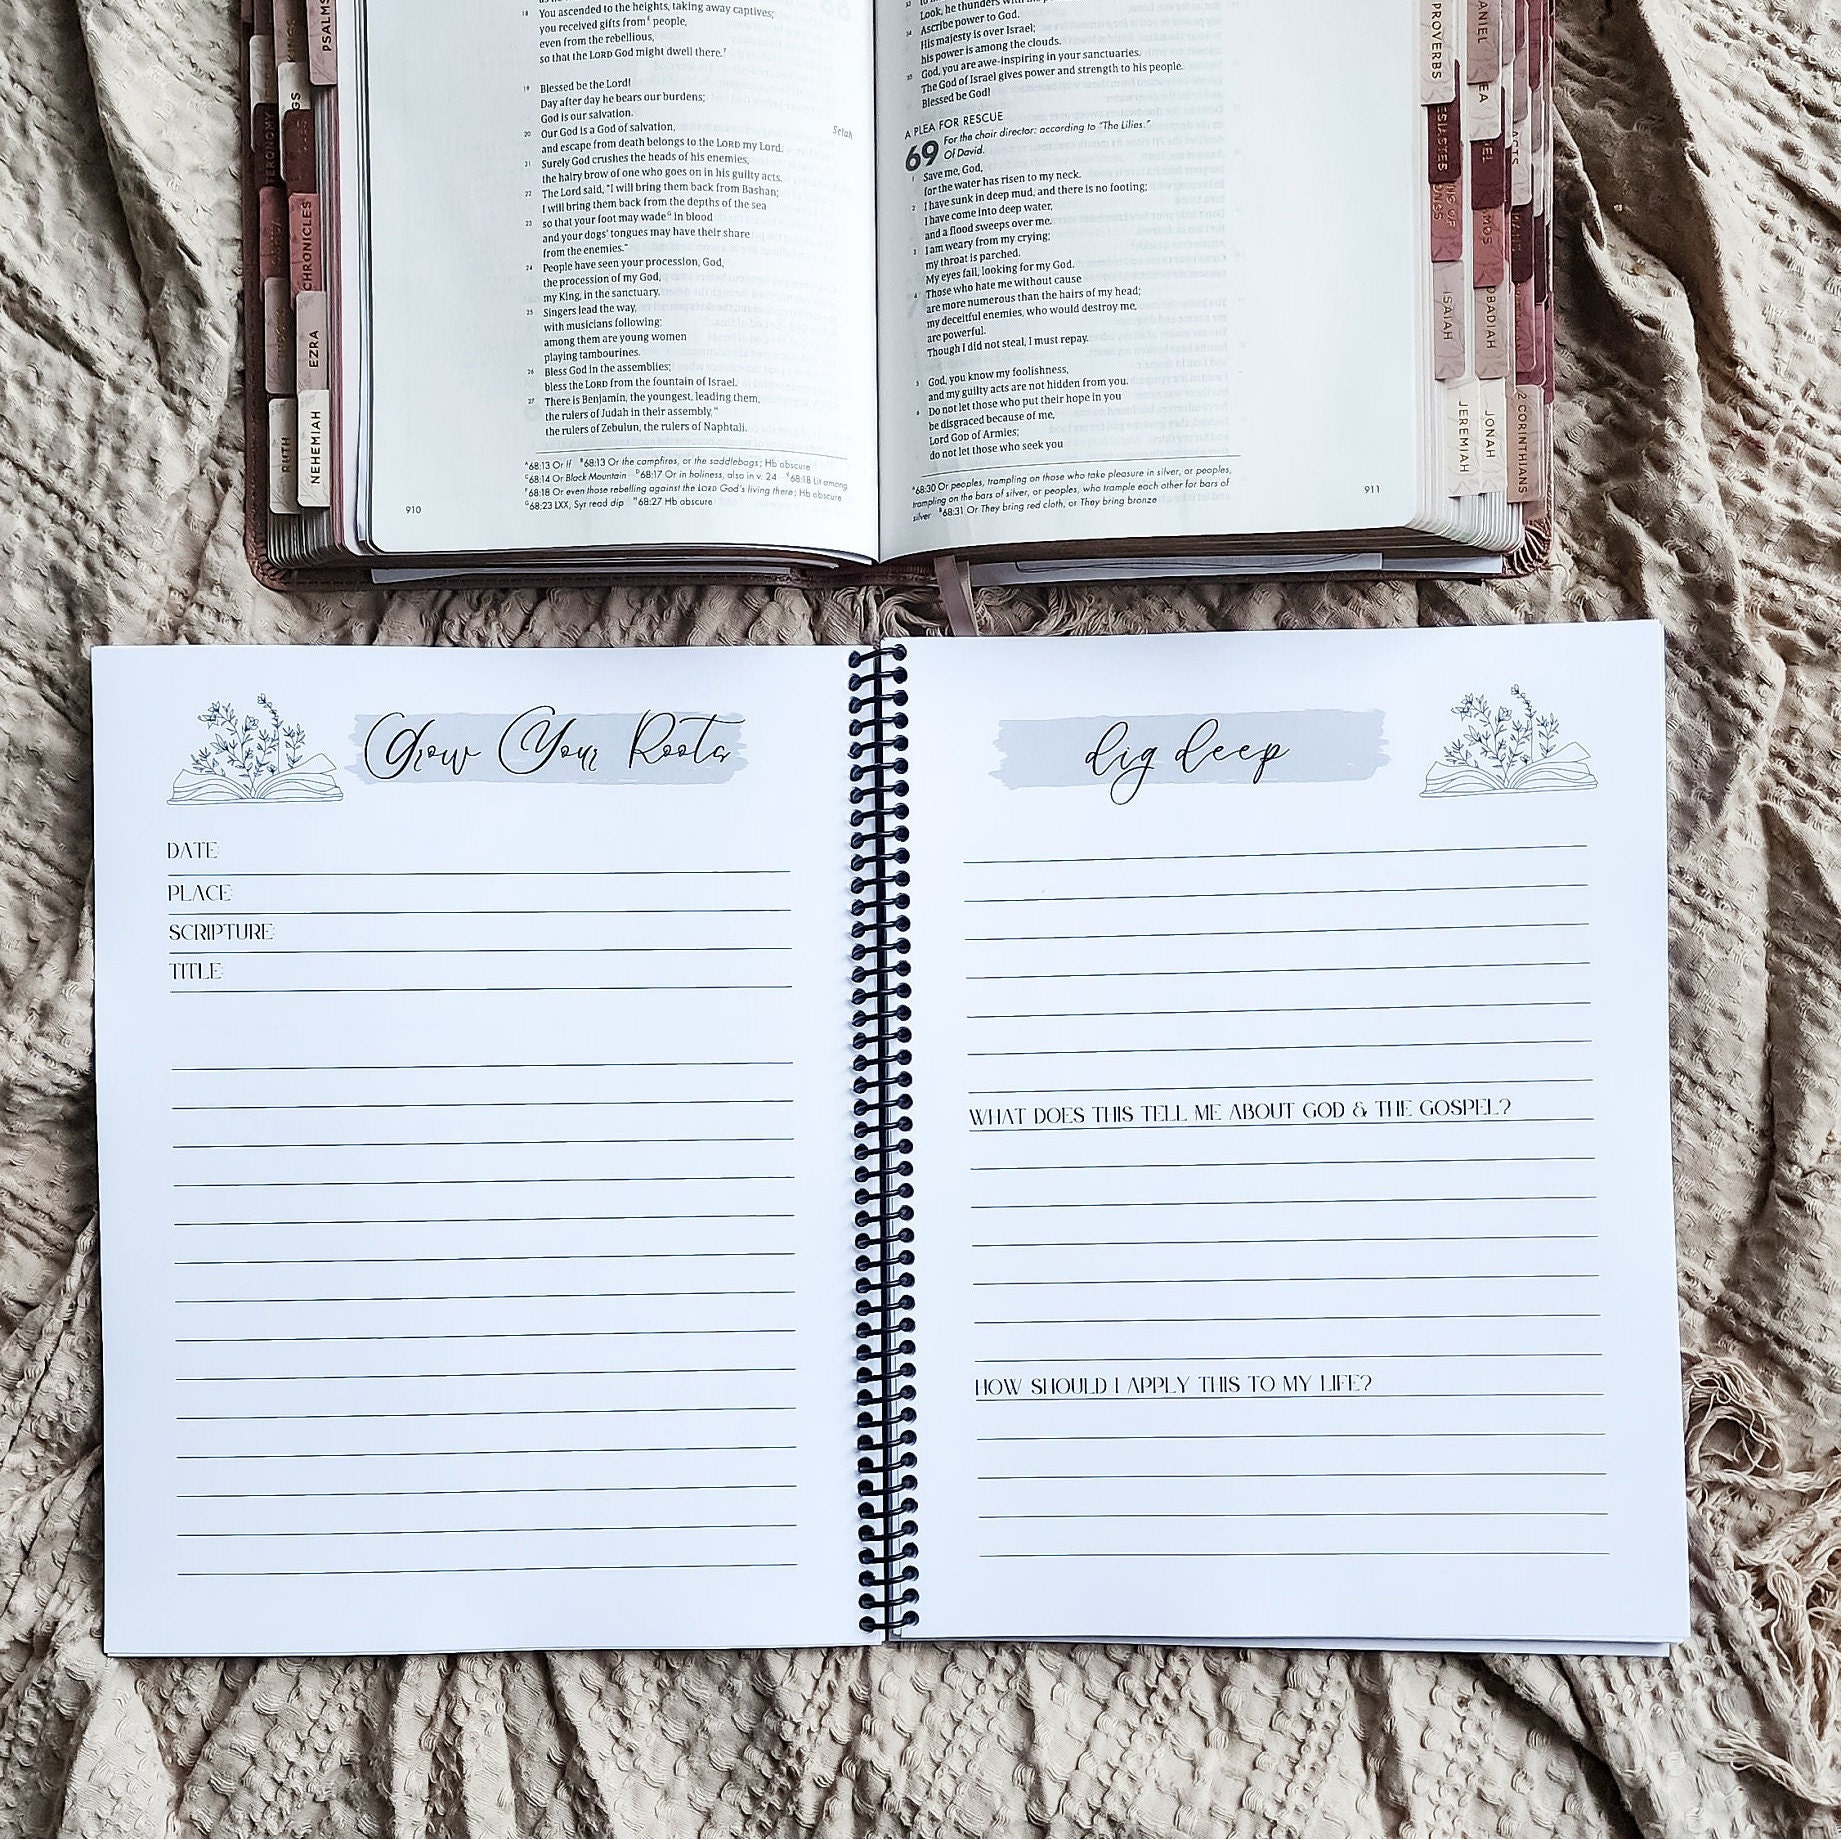 PSALMS
EZRA
NEHEMIAH
RUTH
CHRONICLES
18 You ascended to the heights, taking away captives;
you received gifts from people,
even from the rebellious,
so that the LORD God might dwell there.
19 Blessed be the Lord!
Day after day he bears our burdens;
God is our salvation. Selah
20 Our God is a God of salvation,
and escape from death belongs to the LORD my Lord.
21 Surely God crushes the heads of his enemies,
the hairy brow of one who goes on in his guilty acts.
22 The Lord said, "I will bring them back from Bashan;
I will bring them back from the depths of the sea
23 so that your foot may wade in blood
and your dogs' tongues may have their share
from the enemies."
24 People have seen your procession, God,
the procession of my God,
my King, in the sanctuary.
25 Singers lead the way,
with musicians following;
among them are young women
playing tambourines.
26 Bless God in the assemblies;
bless the LORD from the fountain of Israel.
27 There is Benjamin, the youngest, leading them,
the rulers of Judah in their assembly,
the rulers of Zebulun, the rulers of Naphtali.
68:13 Or If 68:13 Or the campfires, or the saddlebags; Hb obscure
68:14 Or Black Mountain 68:17 Or in holiness, also in v. 24 68:18 Lit among
68:18 Or even those rebelling against the LORD God's living there; Hb obscure
68:23 LXX, Syr read dip 68:27 Hb obscure
910
Look, he thunders with
Ascribe power to God.
His majesty is over Israel;
his power is among the clouds.
35 God, you are awe-inspiring in your sanctuaries.
The God of Israel gives power and strength to his people.
Blessed be God!
A PLEA FOR RESCUE
69 For the choir director: according to "The Lilies."
Of David.
1 Save me, God,
for the water has risen to my neck.
2 I have sunk in deep mud, and there is no footing;
I have come into deep water,
and a flood sweeps over me.
3 I am weary from my crying;
my throat is parched.
My eyes fail, looking for my God.
4 Those who hate me without cause
are more numerous than the hairs of my head;
my deceitful enemies, who would destroy me,
are powerful.
Though I did not steal, I must repay.
5 God, you know my foolishness,
and my guilty acts are not hidden from you.
6 Do not let those who put their hope in you
be disgraced because of me,
Lord GOD of Armies;
do not let those who seek you
68:30 Or peoples, trampling on those who take pleasure in silver, or peoples,
trampling on the bars of silver, or peoples, who trample each other for bars of
silver 68:31 Or They bring red cloth, or They bring bronze
911
PROVERBS
ISAIAH
JEREMIAH
OBADIAH
JONAH
2 CORINTHIANS
Grow Your Roots
DATE:
PLACE:
SCRIPTURE:
TITLE:
dig deep
WHAT DOES THIS TELL ME ABOUT GOD & THE GOSPEL?
HOW SHOULD I APPLY THIS TO MY LIFE?